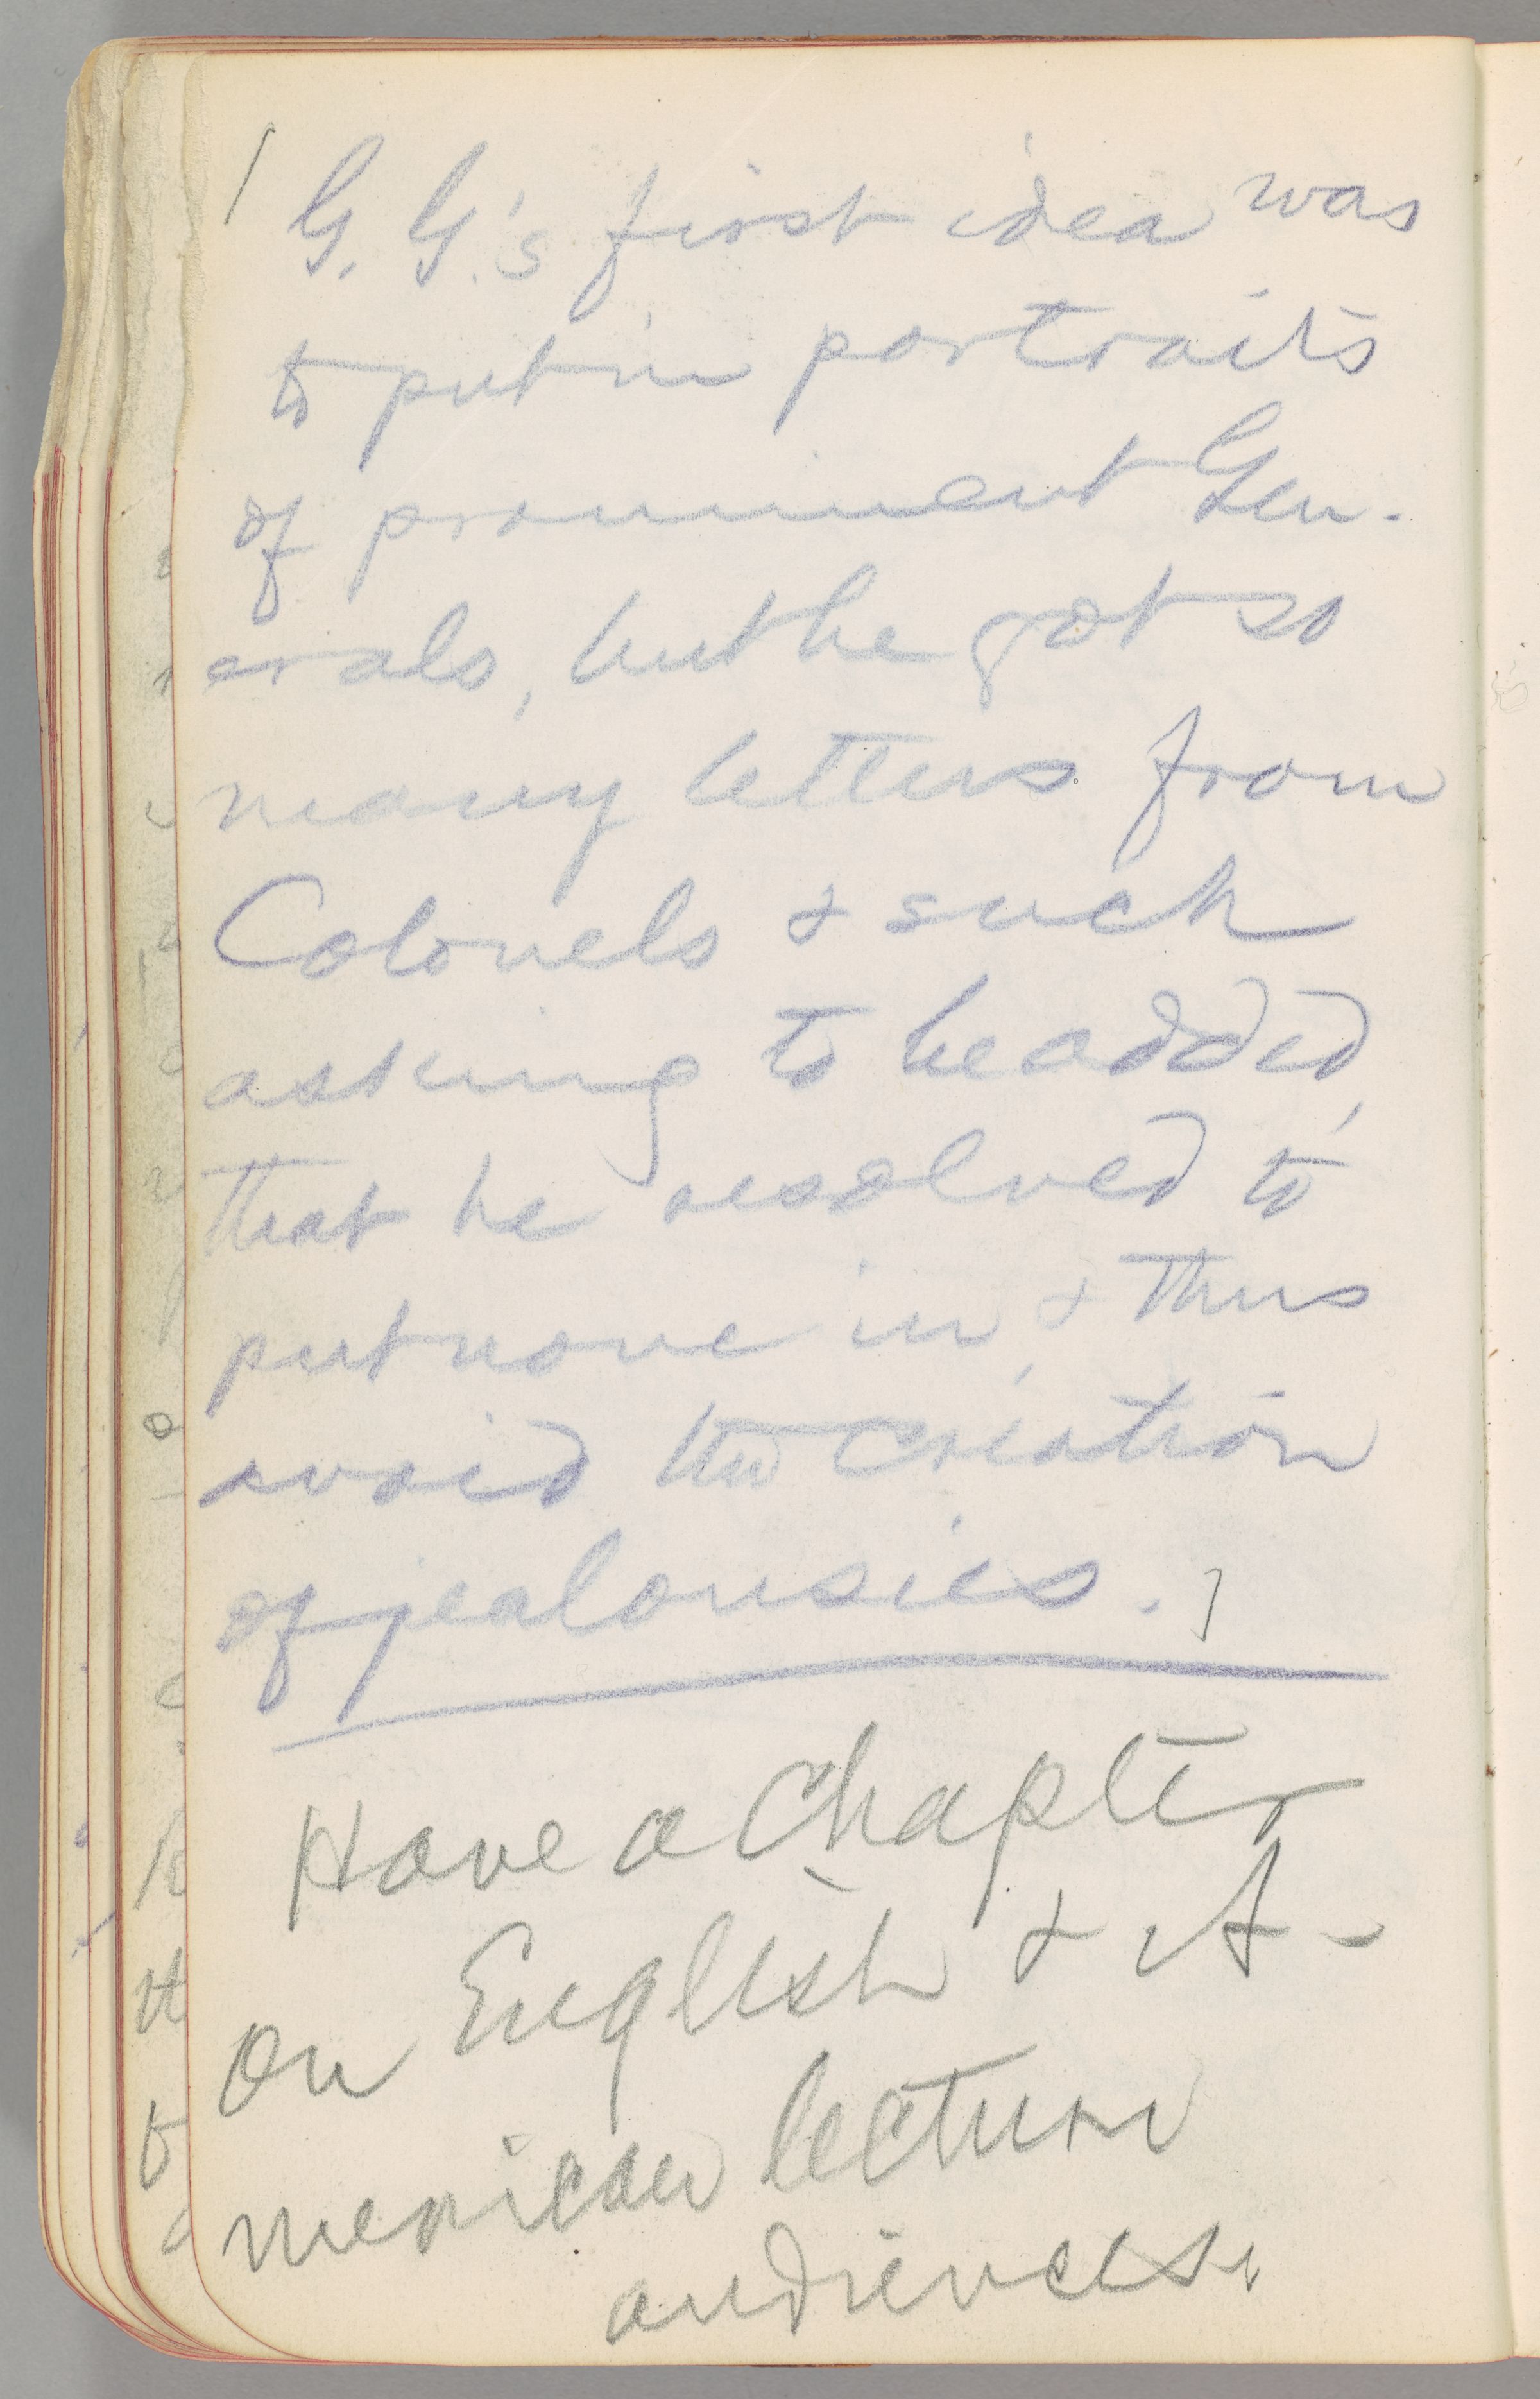 G. G.'s first idea was
to put in portraits
of prominent Gen-
erals, but he got so
many letters from
Colonels & such
asking to be added,
that he resolved to
put none in, & thus
avoid the creation
of jealousies.]
Have a Chapter
on English & A-
merican lecture
audiences.